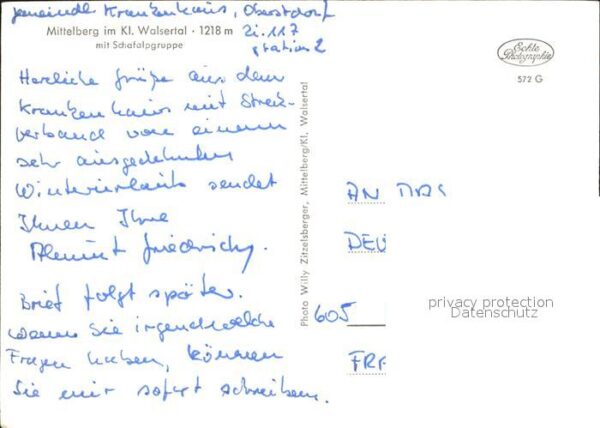 Gemeinde Krankenhaus, Oberstdorf
Mittelberg im Kl. Walsertal · 1218 m
Zi. 117
mit Schafalpgruppe
Station 2
Herzliche Grüße aus dem
Krankenhaus mit Streck-
verband von einem
sehr ausgedehnten
Winterurlaub sendet
Ihnen Ihre
Friedrich.
Brief folgt später.
Wenn Sie irgendwelche
Fragen haben, können
Sie mir sofort schreiben.
Photo Willy Zitzelsberger, Mittelberg/Kl. Walsertal
Echte
Photographie
572 G
AN DAS
DEU
605
privacy protection
Datenschutz
FRA